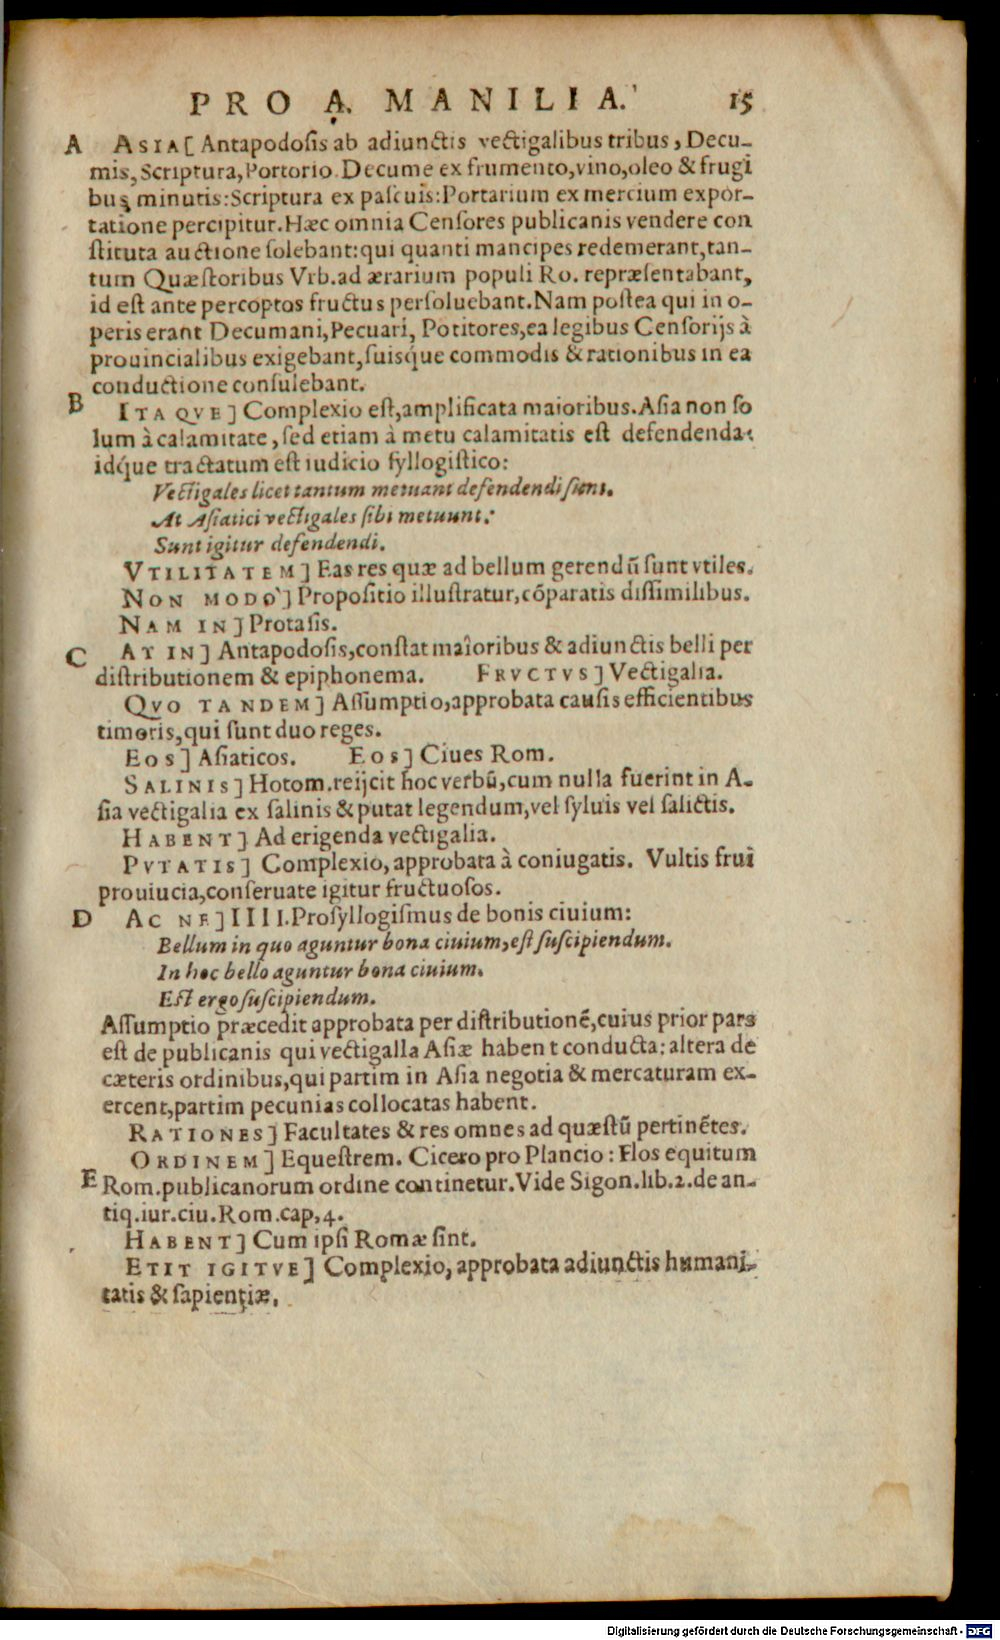 PRO A. MANILIA. 15
A ASIA[ Antapodosis ab adiunctis vectigalibus tribus, Decu-
mis, Scriptura, Portorio. Decume ex frumento, vino, oleo & frugi
bus minutis: Scriptura ex pascuis: Portarium ex mercium expor-
tatione percipitur. Hæc omnia Censores publicanis vendere con
stituta auctione solebant: qui quanti mancipes redemerant, tan-
tum Quæstoribus Vrb. ad ærarium populi Ro. repræsentabant,
id est ante perceptos fructus persoluebant. Nam postea qui in o-
peris erant Decumani, Pecuari, Potitores, ea legibus Censorijs à
prouincialibus exigebant, suisq́ue commodis & rationibus in ea
conductione consulebant.
B ITA QVE] Complexio est, amplificata maioribus. Asia non so
lum à calamitate, sed etiam à metu calamitatis est defendenda:
idq́ue tractatum est iudicio syllogistico:
Vectigales licet tantum metuant defendendi sunt.
At Asiatici vectigales sibi metuunt:
Sunt igitur defendendi.
VTILITATEM] Eas res quæ ad bellum gerendũ sunt vtiles.
NON MODO`] Propositio illustratur, cõparatis dissimilibus.
NAM IN] Protasis.
C AT IN] Antapodosis, constat maioribus & adiunctis belli per
distributionem & epiphonema. FRVCTVS] Vectigalia.
QVO TANDEM] Assumptio, approbata causis efficientibus
timoris, qui sunt duo reges.
EOS] Asiaticos. EOS] Ciues Rom.
SALINIS] Hotom. reijcit hoc verbũ, cum nulla fuerint in A-
sia vectigalia ex salinis & putat legendum, vel syluis vel salictis.
HABENT] Ad erigenda vectigalia.
PVTATIS] Complexio, approbata à coniugatis. Vultis frui
prouiucia, conseruate igitur fructuosos.
D AC NE] IIII. Prosyllogismus de bonis ciuium:
Bellum in quo aguntur bona ciuium, est suscipiendum.
In hoc bello aguntur bona ciuium.
Est ergo suscipiendum.
Assumptio præcedit approbata per distributionẽ, cuius prior pars
est de publicanis qui vectigalla Asiæ haben t conducta: altera de
cæteris ordinibus, qui partim in Asia negotia & mercaturam ex-
ercent, partim pecunias collocatas habent.
RATIONES] Facultates & res omnes ad quæstũ pertinẽtes.
ORDINEM] Equestrem. Cicero pro Plancio: Flos equitum
E Rom. publicanorum ordine continetur. Vide Sigon. lib. 2. de an-
tiq. iur. ciu. Rom. cap, 4.
HABENT] Cum ipsi Romæ sint.
ETIT IGITVE] Complexio, approbata adiunctis humani-
tatis & sapientiæ.
Digitalisierung gefördert durch die Deutsche Forschungsgemeinschaft - DFG